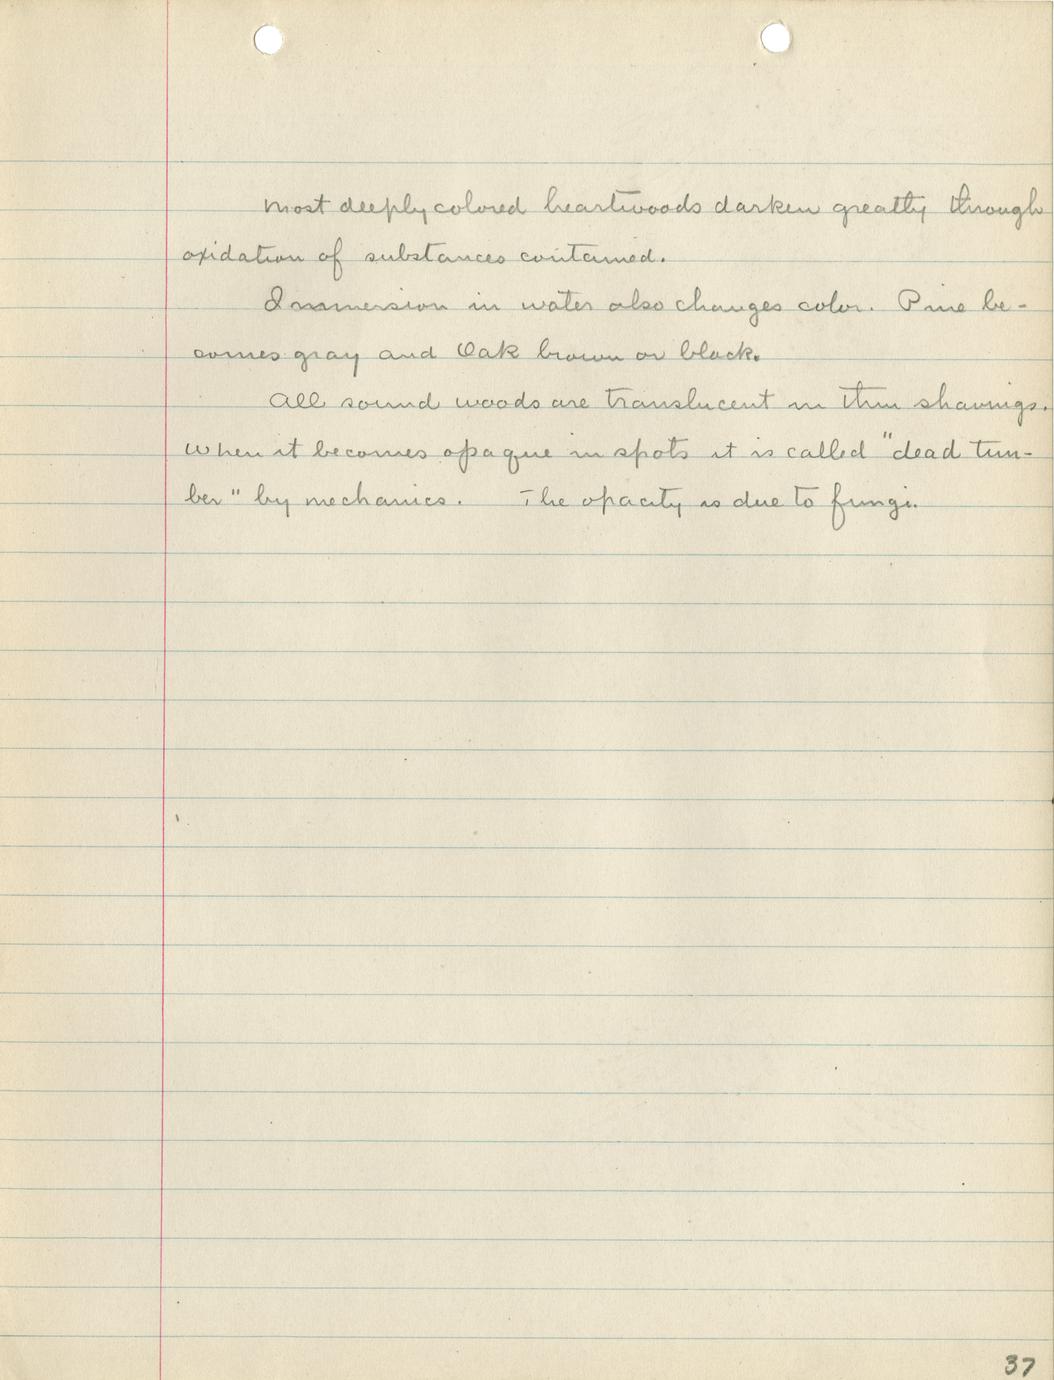 Most deeply colored heartwoods darken greatly through
oxidation of substances contained.
Immersion in water also changes color. Pine be-
comes gray and Oak brown or black.
All sound woods are translucent in thin shavings.
When it becomes opaque in spots it is called "dead tim-
ber" by mechanics. The opacity is due to fungi.
37